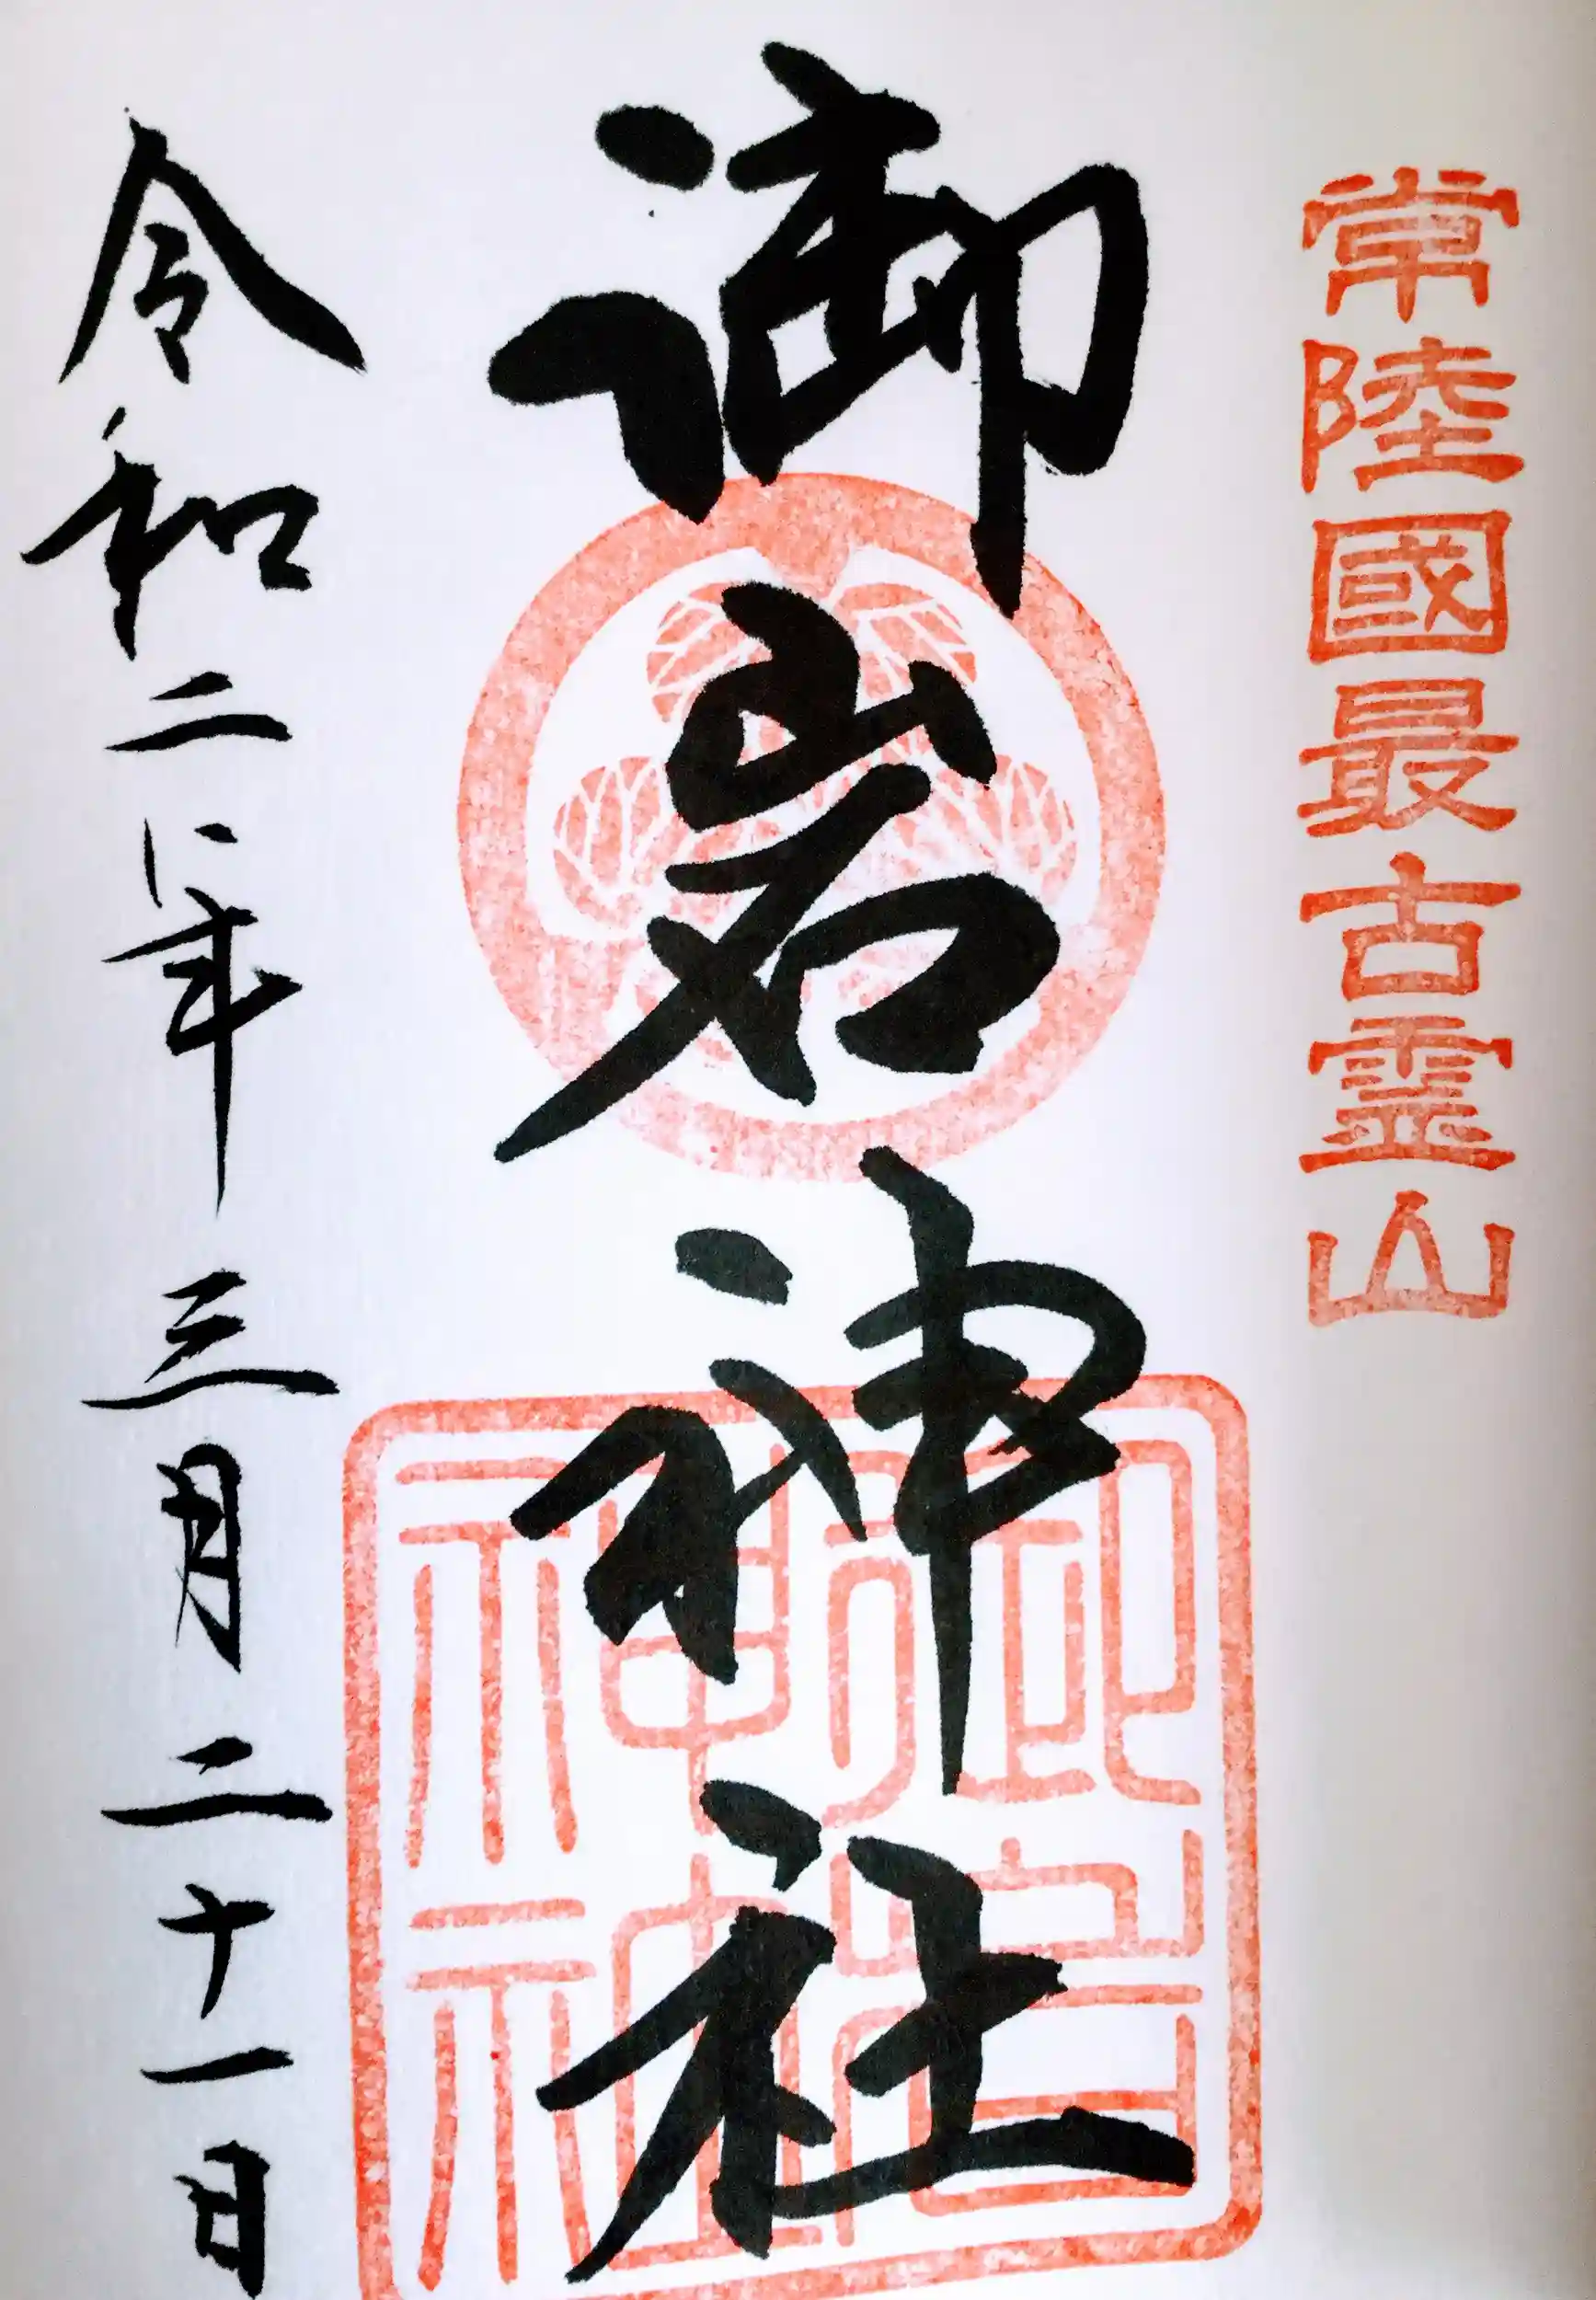 常陸國最古霊山
御岩神社
御岩
神社
令和二年三月二十一日